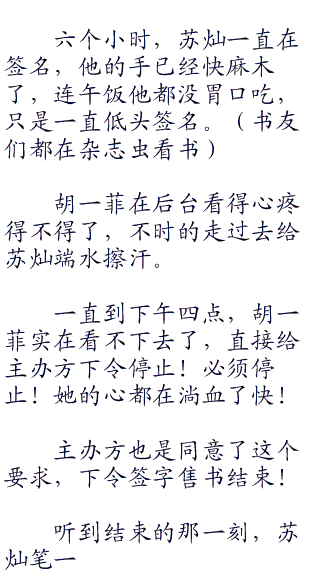 六个小时，苏灿一直在
签名，他的手已经快麻木
了，连午饭他都没胃口吃，
只是一直低头签名。（书友
们都在杂志虫看书）
胡一菲在后台看得心疼
得不得了，不时的走过去给
苏灿端水擦汗。
一直到下午四点，胡一
菲实在看不下去了，直接给
主办方下令停止！必须停
止！她的心都在淌血了快！
主办方也是同意了这个
要求，下令签字售书结束！
听到结束的那一刻，苏
灿笔一